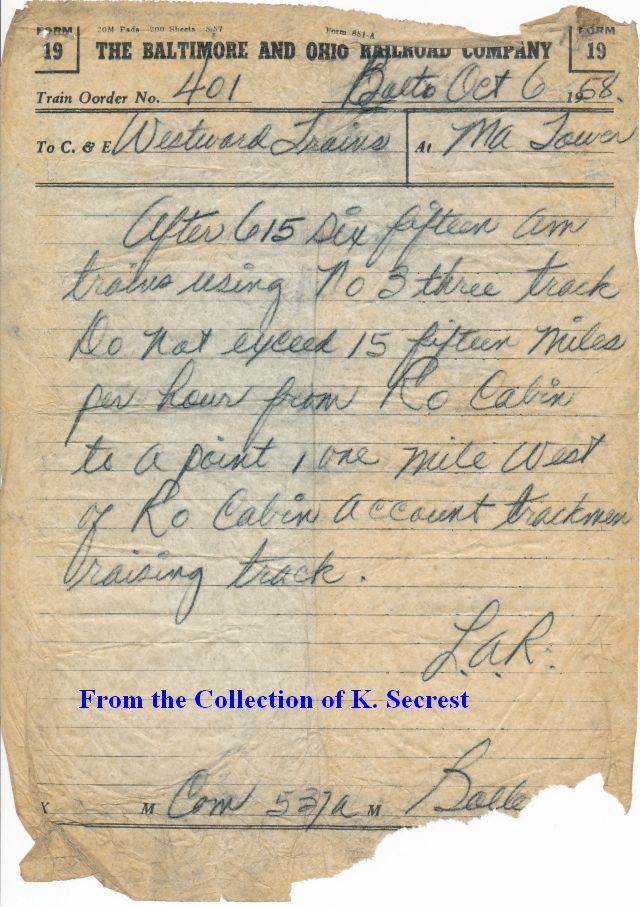 FORM 19 20M Pads 200 Sheets 5-57 Form 851-A FORM 19
THE BALTIMORE AND OHIO RAILROAD COMPANY
Train Oorder No. 401 Balto Oct 6 1958.
To C. & E. Westward Trains At Ma Tower
After 615 six fifteen am
trains using No 3 three track
Do not exceed 15 fifteen miles
per hour from Ro Cabin
to a point 1 one mile West
of Ro Cabin account trackmen
raising track.
L.A.R.
From the Collection of K. Secrest
X M Com 537a M Balto